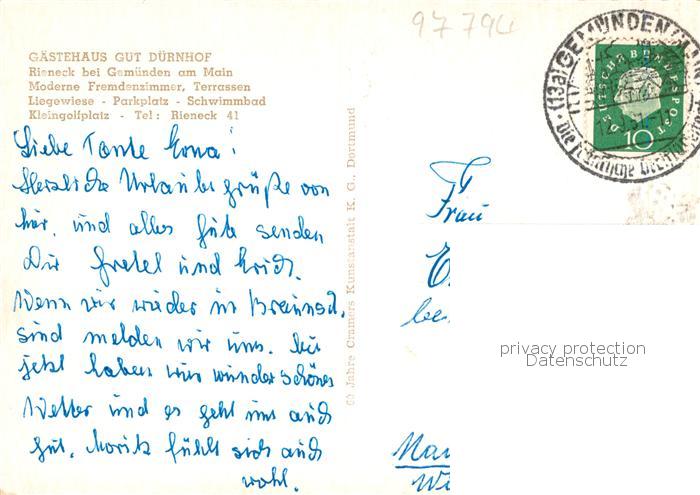 97 794
GÄSTEHAUS GUT DÜRNHOF
Rieneck bei Gemünden am Main
Moderne Fremdenzimmer, Terrassen
Liegewiese - Parkplatz - Schwimmbad
Kleingolfplatz - Tel: Rieneck 41
Liebe Tante Erna!
Herzliche Urlaubsgrüße von
hier, und alles Gute senden
Dir Gretel und Erich.
Wenn wir wieder in Braunsch.
sind melden wir uns. Bis
jetzt haben wir wunderschönes
Wetter und es geht uns auch
gut. Moritz fühlt sich auch
wohl.
60 Jahre Cramers Kunstanstalt K. G., Dortmund
(13a) GEMÜNDEN
DEUTSCHE BUNDESPOST
10
Frau
privacy protection
Datenschutz